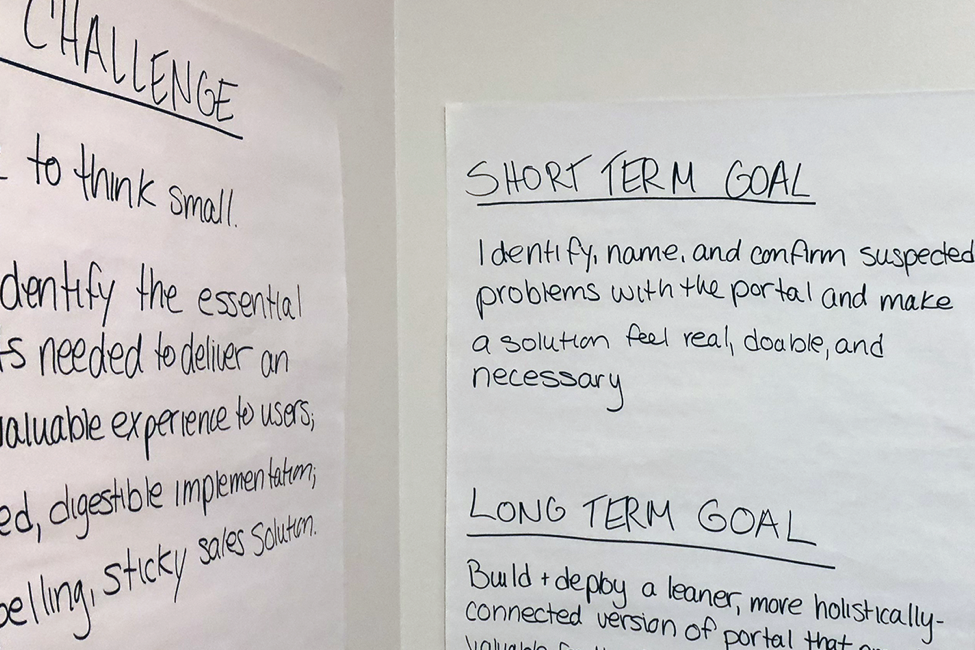 CHALLENGE
to think small.
dentify the essential
needed to deliver an
valuable experience to users;
digestible implementation;
sticky sales solution.
SHORT TERM GOAL
Identify, name, and confirm suspected
problems with the portal and make
a solution feel real, doable, and
necessary
LONG TERM GOAL
Build + deploy a leaner, more holistically-
connected version of portal that